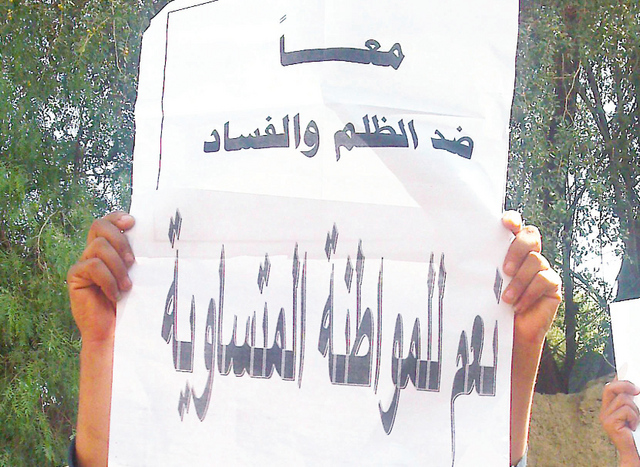 معاً
ضد الظلم والفساد
نعم للمواطنة المتساوية